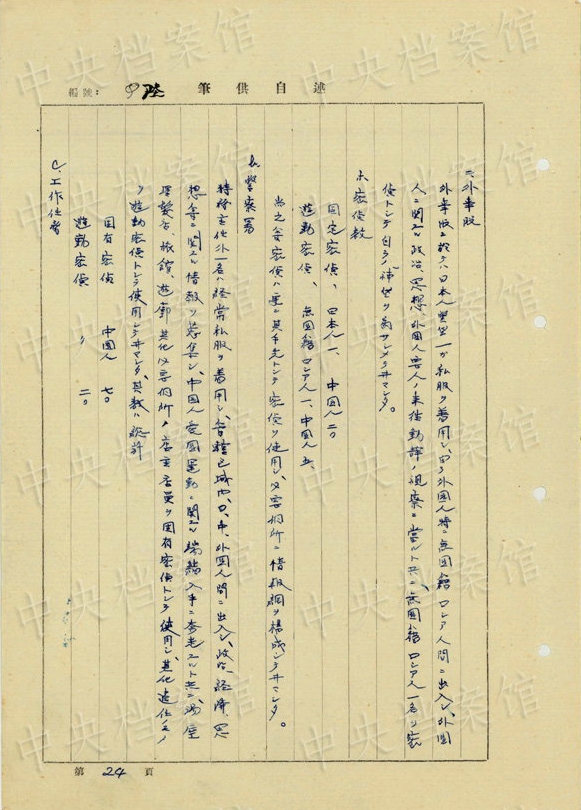 編號：
陸
筆供自述
二、外事股
外事股ニ於テハ日本人巡監一ガ私服ヲ着用シ、白系外国人特ニ無国籍ロシア人間ニ出入シ、外国
人ニ関スル政治、思想、外国人要人ノ来往動静ノ視察ニ當ルト共ニ、無国籍ロシア人一名ヲ密
偵トシテ自ラノ補望ヲ為サシメテヰマシタ。
ホ、密偵数
固定密偵、日本人一、中国人二〇
遊動密偵、無国籍ロシア人一、中国人五、
尚之等密偵ハ更ニ其手先トシテ密偵ヲ使用シ、必要個所ニ情報網ヲ構成シテヰマシタ。
b、警察署
特務主任外一名ハ経常私服ヲ着用シ、管轄区域内、日、中、外国人間ニ出入シ、政治、経済、思
想等ニ関スル情報ヲ蒐集シ、中国人愛国運動ニ関スル端緒入手ニ
ト共ニ、
理髪店、旅館、遊廓其他必要個所ノ店主店員ヲ固有密偵トシテ使用シ、其他適任者
ヲ遊動密偵トシテ使用シテヰマシタ、其数ハ総計
固有密偵 中国人 七〇
遊動密偵 〃 二〇
C、工作任務
第 24 頁
中央档案馆